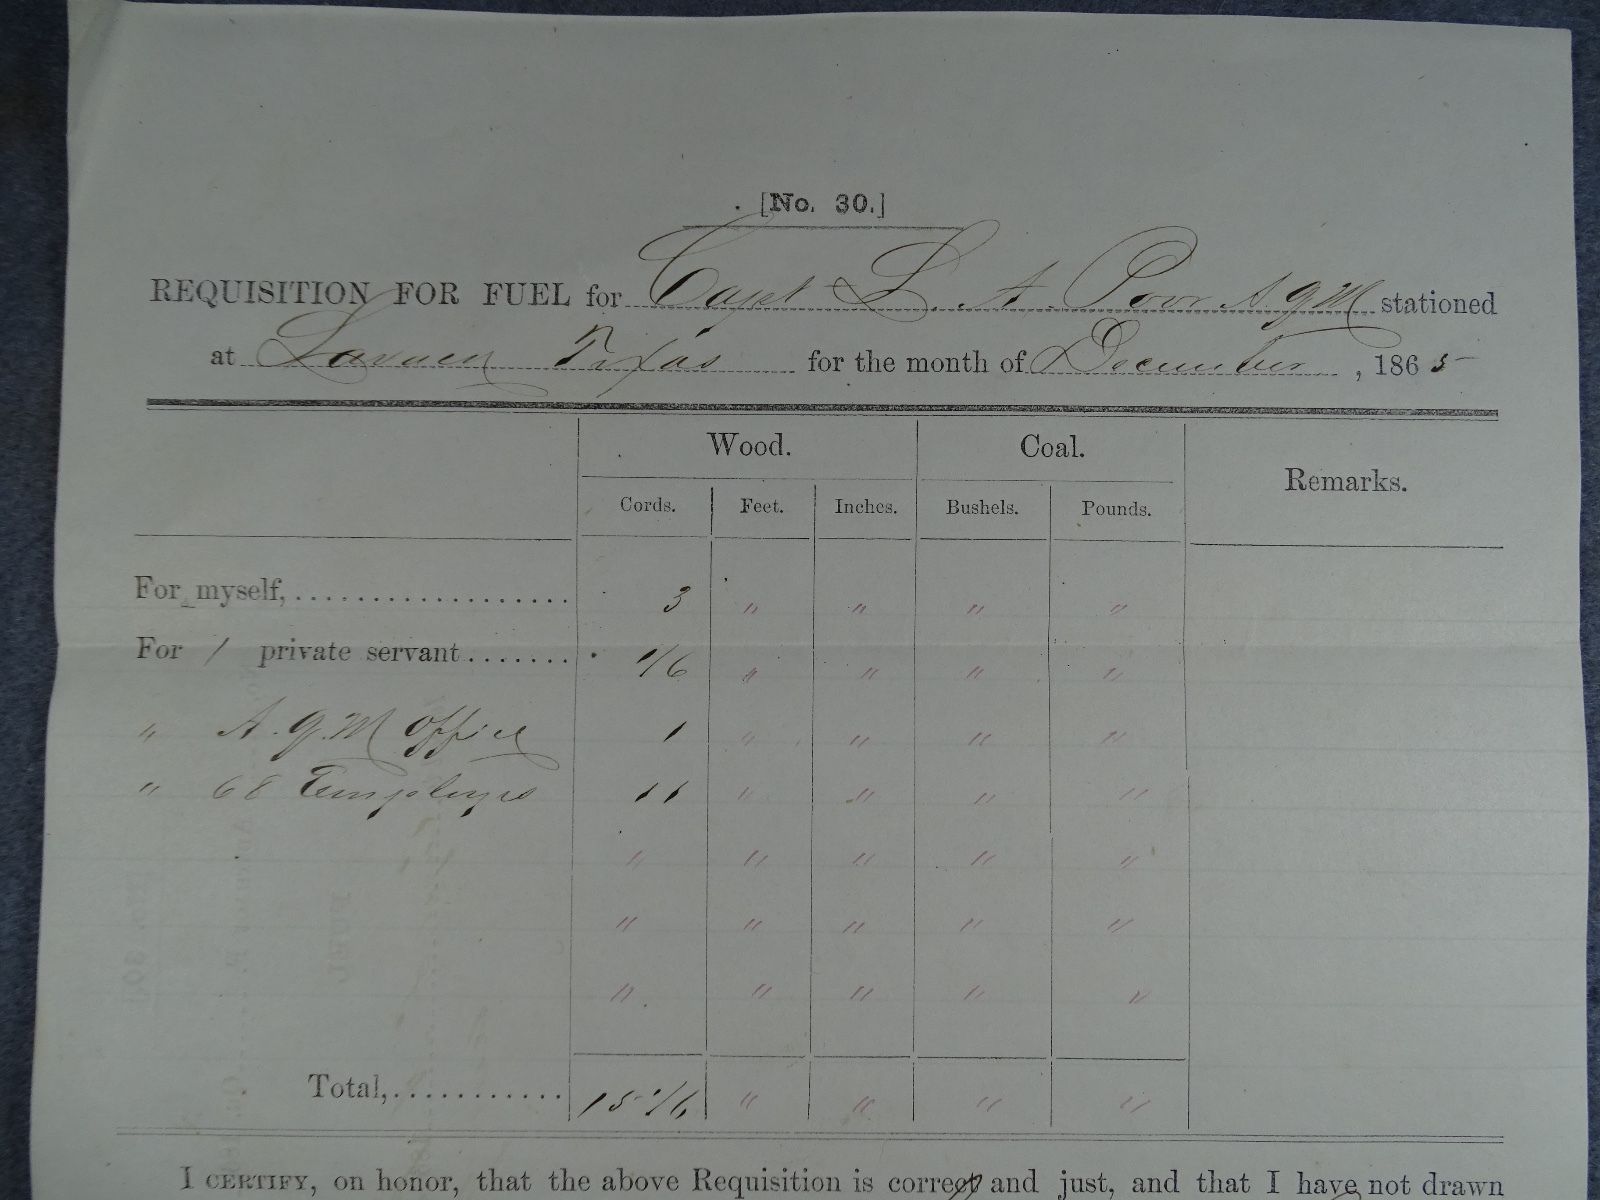 [No. 30.]
REQUISITION FOR FUEL for Capt L. A. Poor A.Q.M stationed
at Lavaca Texas for the month of December, 1865
Wood. Coal. Remarks.
Cords. Feet. Inches. Bushels. Pounds.
For myself,.................. 3 " " " "
For 1 private servant....... 1/6 " " " "
" A.Q.M Office 1 " " " "
" 68 Employes 11 " " " "
" " " " "
" " " " "
" " " " "
Total,........... 15 1/6 " " " "
I CERTIFY, on honor, that the above Requisition is correct and just, and that I have not drawn